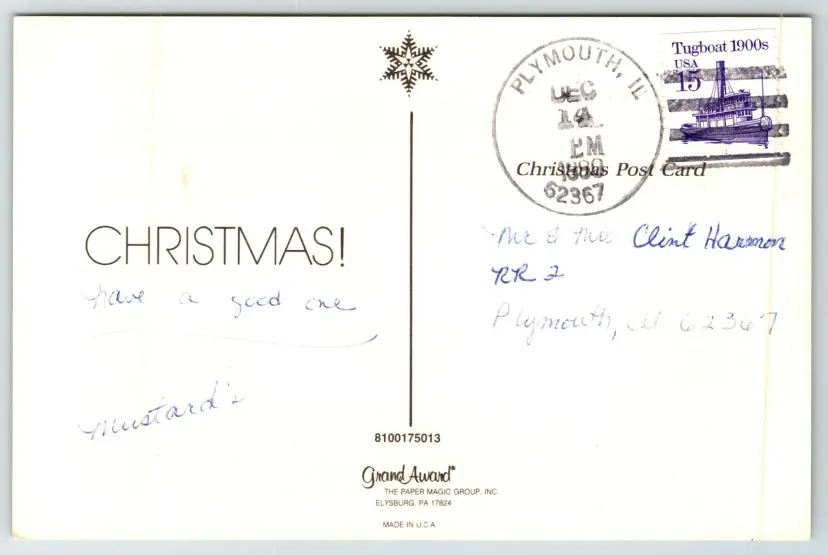 Tugboat 1900s
USA
15
PLYMOUTH, IL
DEC
14
PM
62367
Christmas Post Card
CHRISTMAS!
have a good one
Mustard's
Mr & Mrs Clint Harmon
RR 2
Plymouth, Ill 62367
8100175013
Grand Award®
THE PAPER MAGIC GROUP, INC.
ELYSBURG, PA 17824
MADE IN U.S.A.